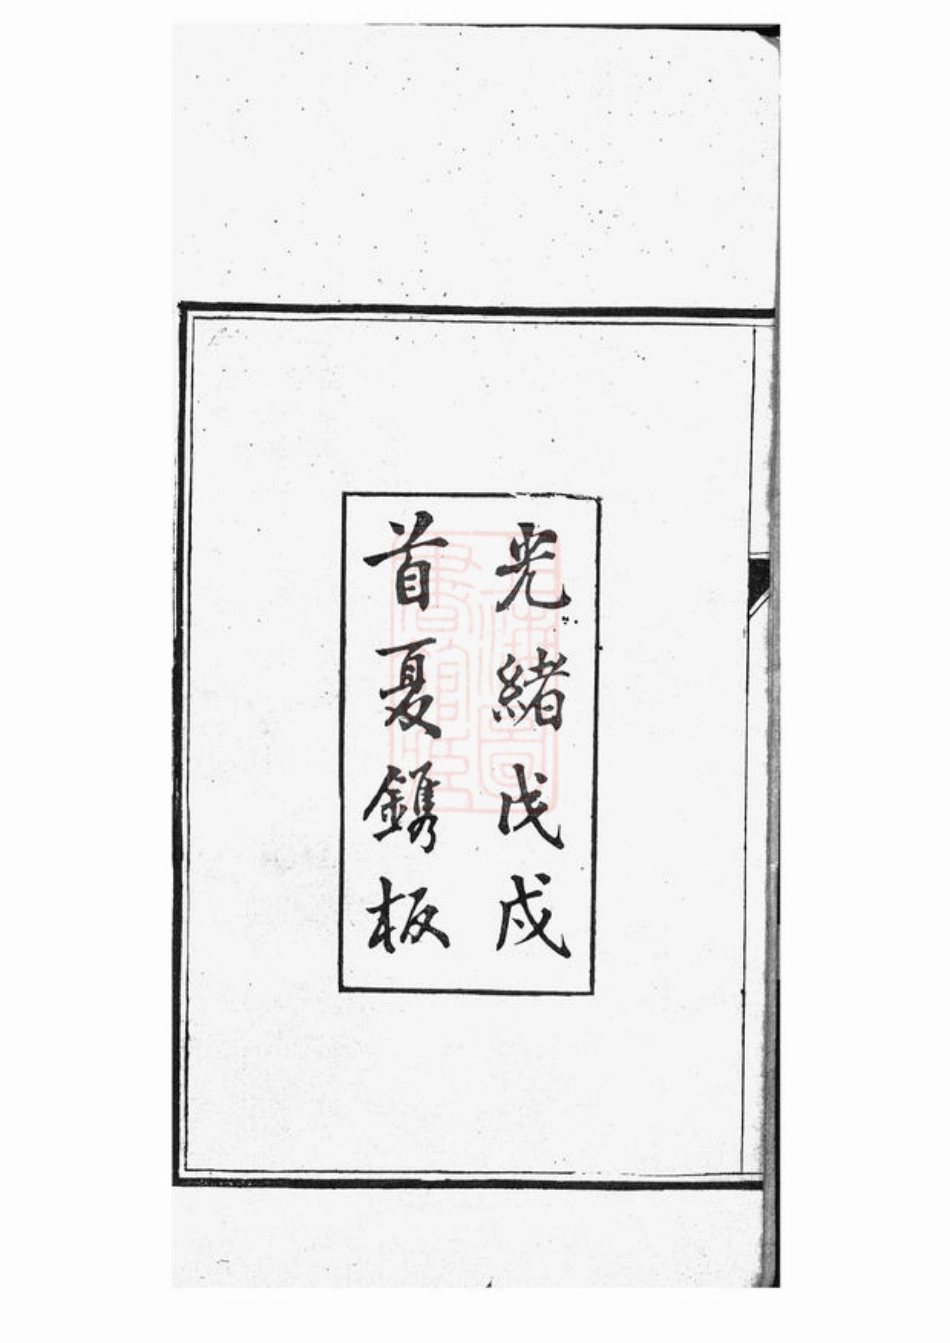 光緒戊戌
首夏鐫板